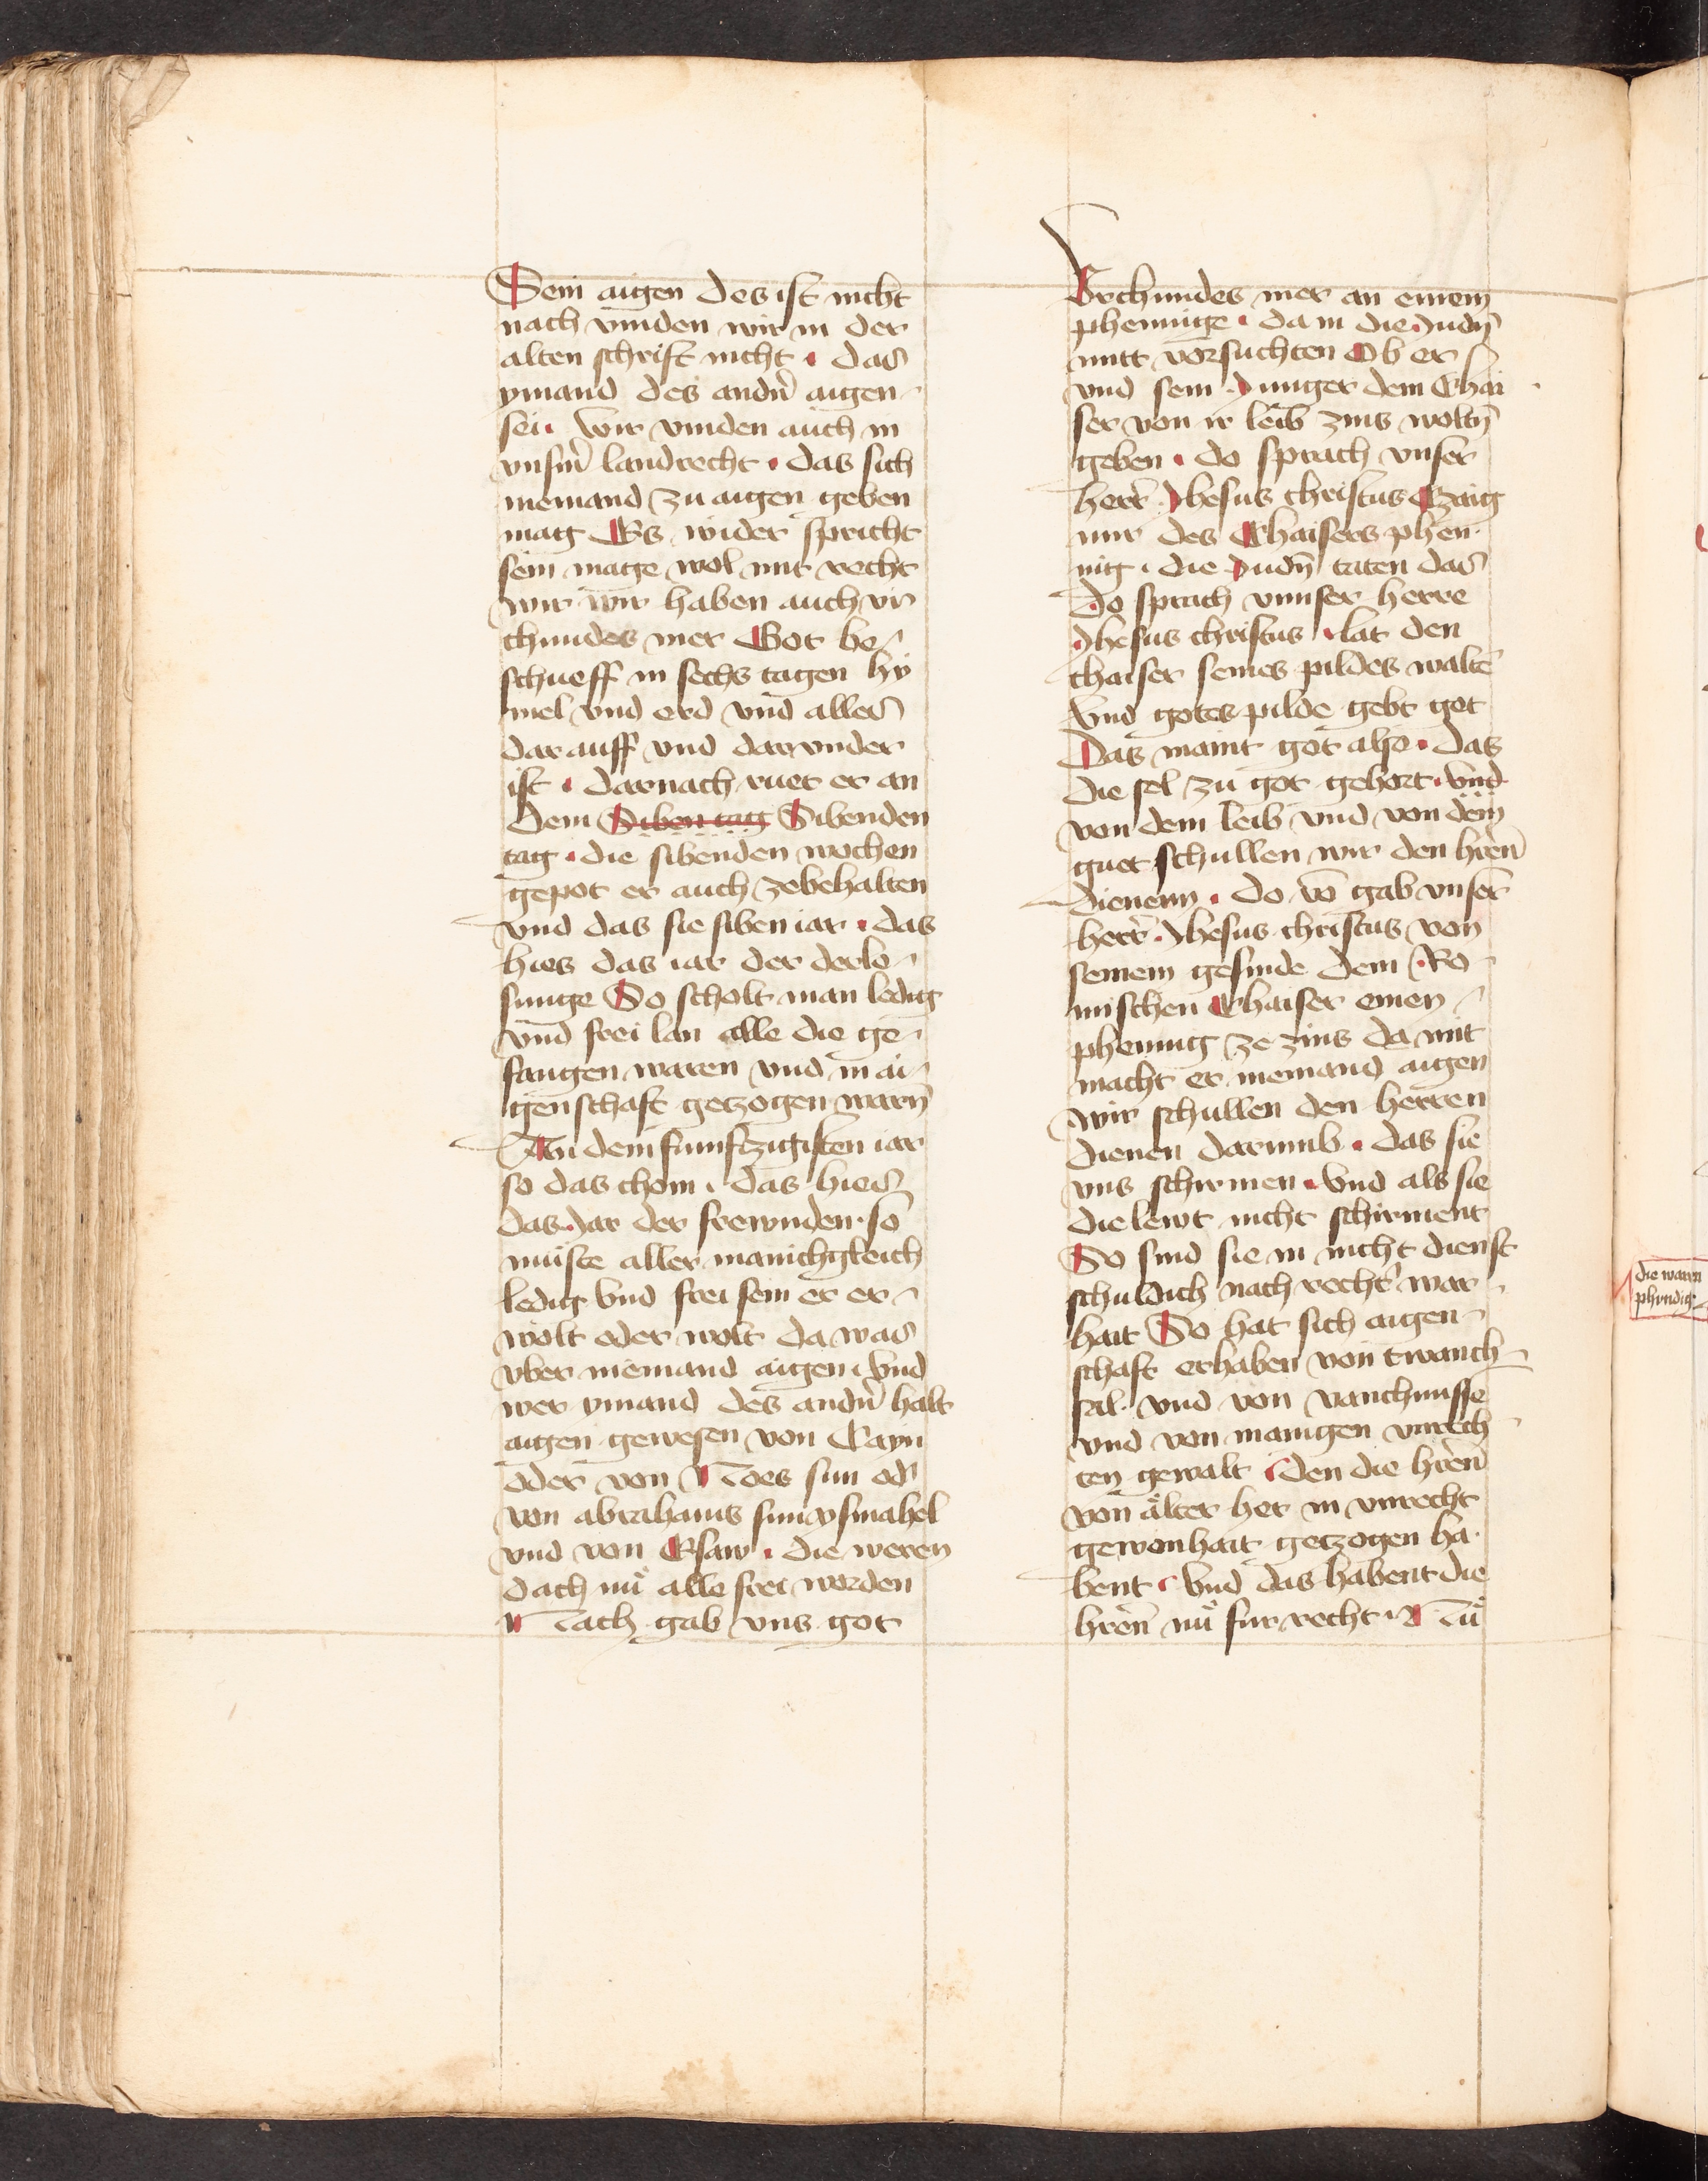 Sein aigen des ist nicht
nach vinden wir in der
alten schrift nicht · das
ymand des andn̄ aigen
sei · Wir vinden auch in
vnsm̄ landrecht · das sich
niemand zu aigen geben
mag Es wider spricht
sein mage wol mit recht
wir wir haben auch vr
chundes mer Got be
schueff in sechs tagen hÿ
mel vnd erd vnd alles
darauff vnd darvnder
ist · darnach ruet er an
dem Siben tag Sibenden
tag · die sibenden wochen
gepot er auch zebehalten
vnd das sie siben iar · das
hies das iar der derlo
sunge So scholt man ledig
vnd frei lan alle die ge
fangen waren vnd in ai
genschaft getzogen warn̄
An dem funftzigisten iar
so das chom · das hies
das Jar der frewnden · so
muste aller manichgleich
ledig vnd frei sein er er
wolt oder wolt da was
vber niemand aigen · Vnd
wer ymand des andn̄ halt
aigen gewesen von Cayn
oder von Noes sun od̄
von abrahams sun ysmahel
vnd von Esaw · die weren
dach nů alle frei worden
Nach gab vns got
Vrchundes mer an einem
phenninge · da in die Judn̄
mitt vorsuchten Ob er
vnd sein Junger dem Chai
ser von ir leib zins woltn̄
geben · do sprach vnser
herr̄ Jhesus christus Czaig
mir des Chaisers phen
nig · die Judn̄ taten das
Do sprach vnnser herre
Jhesus christus · lat den
chaiser seines pildes walten̄
Vnd gotes pilde gebt got
Das maint got also · das
die sel zu got gehort · Vnd
von dem leib vnd von dem
guet schullen wir den hren̄
dienenn · do vō gab vnser
herr̄ · Jhesus christus von
seinem gesinde dem Ro
mischen Chaiser einen
phennig ze zins da mit
macht er niemand aigen
Wir schullen den herren
dienen darumb · das sie
vns schirmen · Vnd als sie
die lewt nicht schirment
So sind sie in nicht dienst
schuldich nach recht̄ war
hait So hat sich aigen
schaft erhaben von twanch
sal · vnd von vanchnusse
vnd von manigen vnrech
ten gewalt · den die hren̄
von älter her in vnrecht
gewonhait getzogen ha
bent · Vnd das habent die
hren̄ nů fur recht · Nů
die waren